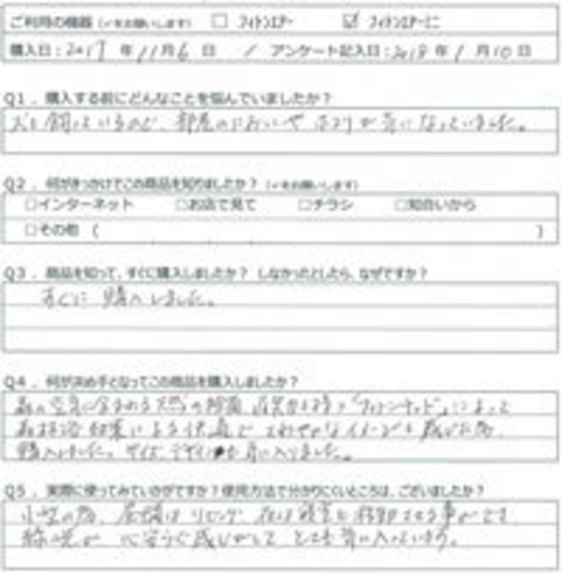 ご利用の機器（✓をお願いします） □ フィトンエアー ☑ フィトンエアーミニ
購入日：2017 年 11月 6 日 / アンケート記入日：2018 年 1 月 10 日
Q1．購入する前にどんなことを悩んでいましたか？
犬を飼っているので、部屋のにおいや ホコリが気になっていました。
Q2．何がきっかけでこの商品を知りましたか？（✓をお願いします）
□インターネット □お店で見て □チラシ □知合いから
□その他（ ）
Q3．商品を知って、すぐに購入しましたか？ しなかったとしたら、なぜですか？
すぐに 購入しました。
Q4．何が決め手となってこの商品を購入しましたか？
森の空気に含まれる天然の除菌 消臭力を持つ「フィトンチッド」によって
森林浴効果による快適で さわやかなイメージを 感じた為
購入しました。サイズ、デザインも 気に入りました。
Q5．実際に使ってみていかがですか？使用方法で分かりにくいところは、ございましたか？
小型の為、昼間は リビング 夜は寝室に移動できる事ができ
緑の光が 心安らぐ感じがして とても気に入っています。